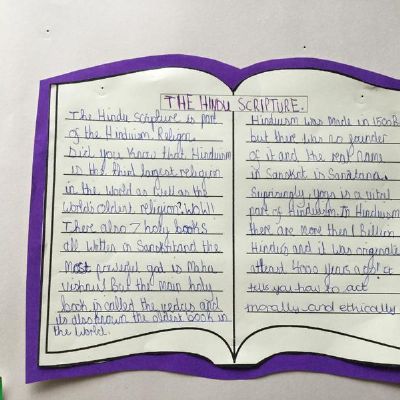 THE HINDU SCRIPTURE.
The Hindu Scripture is part
of the Hinduism Religon.
Did you know that Hinduism
is the third largest religion
in the world as well as the
world's oldest religion? WOW!
There also 7 holy books
all written in Sanskrit and the
most powerful god is Maha
vishnu! But the main holy
book is called the vedus and
its also known the oldest book in
the world.
Hinduism was made in 1500B
but there was no founder
of it and the real name
in Sanskrit is Sanatana
Surprisingly, yoga is a vital
part of Hinduism. In Hinduism
there are more then 1 Billion
Hindus and it was originate
atleast 4000 years ago! It
tells you how to act
morally and ethically